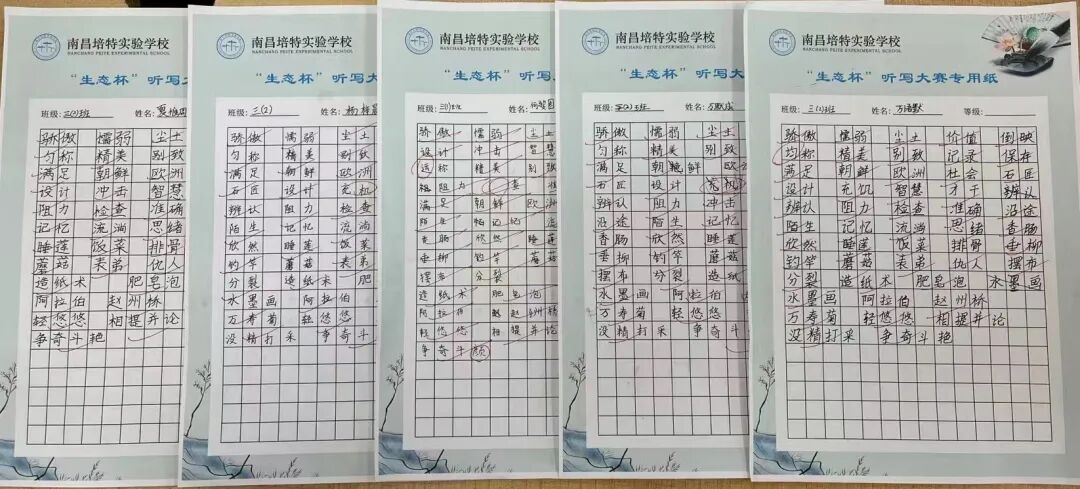 南昌培特实验学校
NANCHANG PEITE EXPERIMENTAL SCHOOL
“生态杯”听写大
班级:三(2)班 姓名:
骄傲 懦弱 尘土
匀称 精美 别致
满足 朝鲜 欧洲
设计 冲击 智慧
阻力 检查 准确
记忆 流淌 思绪
睡莲 饭菜 排骨
蘑菇 表弟 仇人
造纸术 肥皂泡
阿拉伯 赵州桥
轻悠悠 相提并论
争奇斗艳
南昌培特实验学校
NANCHANG PEITE EXPERIMENTAL SCHOOL
“生态杯”听写大
班级:三(2) 姓名:
骄傲 懦弱 尘土
匀称 精美 别致
满足 朝鲜 欧洲
石匠 设计 充饥
辨认 阻力 检查
陌生 记忆 流淌
欣然 睡莲 饭菜
钓竿 蘑菇 表弟
分裂 造纸术 肥
水墨画 阿拉伯
万寿菊 轻悠悠
没精打采 争奇斗
南昌培特实验学校
NANCHANG PEITE EXPERIMENTAL SCHOOL
“生态杯”听写大
班级: 姓名:
骄傲 懦弱 尘土
设计 智慧
称 精美 别致
阻力 查 准
满足 朝鲜 欧洲
陌生 记忆
香肠 欣然 睡莲
垂柳 钓竿 蘑菇
摆布 分裂
造纸术 肥皂泡
阿拉伯 赵州桥
轻悠悠 相提并论
争奇斗颜
南昌培特实验学校
NANCHANG PEITE EXPERIMENTAL SCHOOL
“生态杯”听写大
班级:三(2)班 姓名:
骄傲 懦弱 尘土
匀称 精美 别致
满足 朝鲜 欧
石匠 设计 充饥
辨认 阻力 冲击
沿途 陌生 记忆
香肠 欣然 睡莲
垂柳 钓竿 蘑菇
摆布 分裂 造纸
水墨画 阿拉伯
万寿菊 轻悠悠
没精打采 争奇斗
南昌培特实验学校
NANCHANG PEITE EXPERIMENTAL SCHOOL
“生态杯”听写大赛专用纸
班级:三(2)班 姓名:万语默 等级:
骄傲 懦弱 尘土 价值 倒映
均称 精美 别致 记录 保存
满足 朝鲜 欧洲 社会 石匠
设计 充饥 智慧 才干 辨认
辨认 阻力 检查 准确 沿途
陌生 记忆 流淌 思绪 香肠
欣然 睡莲 饭菜 排骨 垂柳
钓竿 蘑菇 表弟 仇人 摆布
分裂 造纸术 肥皂泡 水墨画
水墨画 阿拉伯 赵州桥
万寿菊 轻悠悠 相提并论
没精打采 争奇斗艳